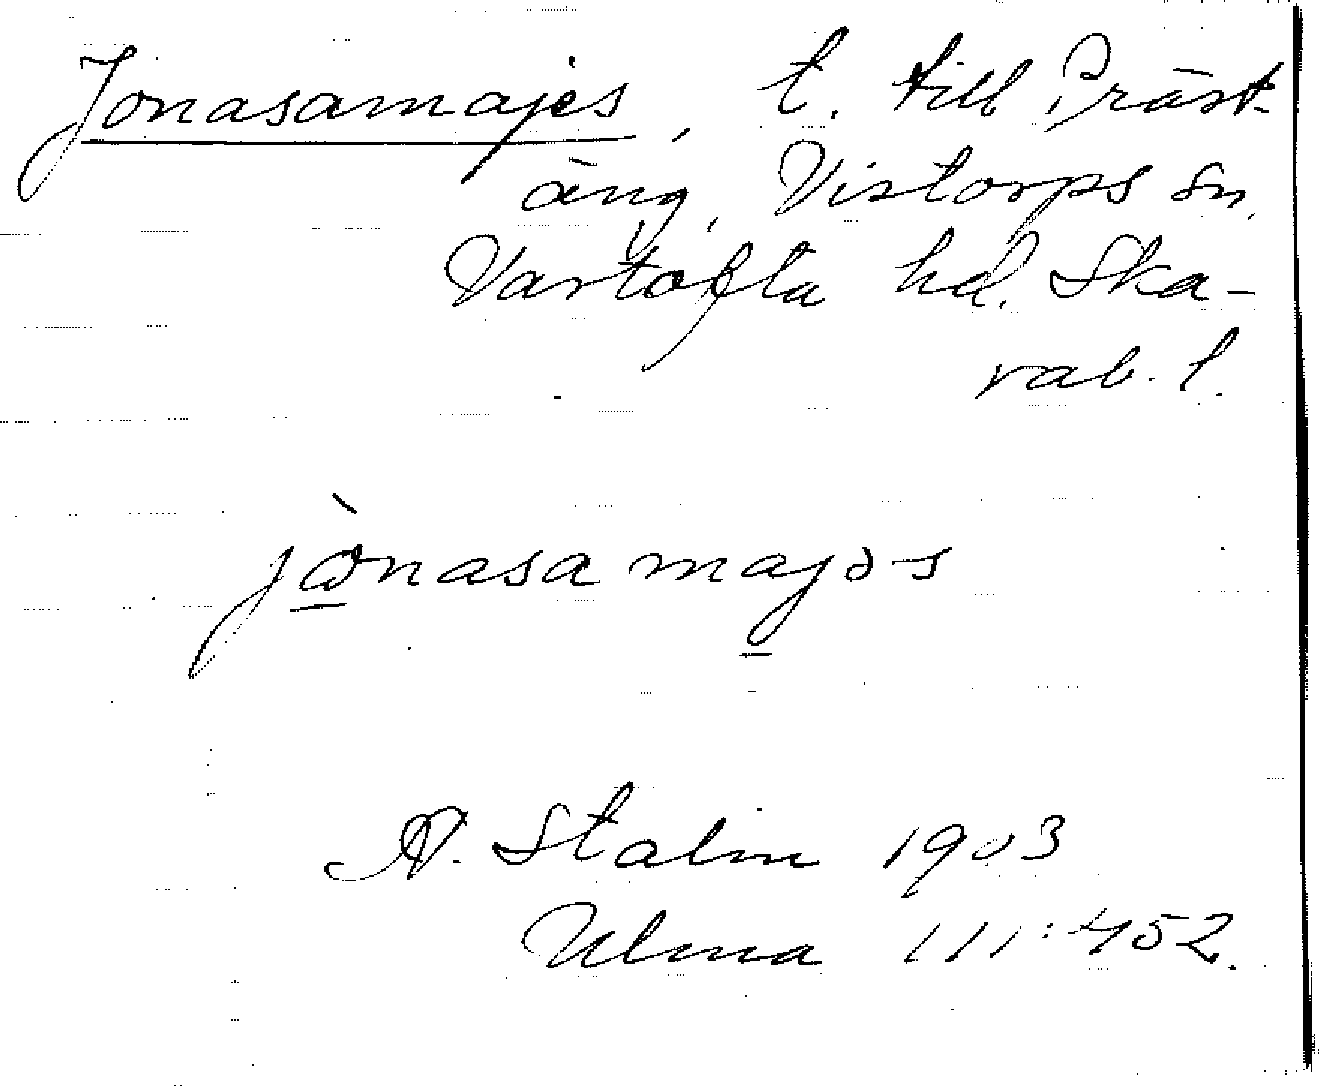 Jonasamajes, t. till Präst-
äng, Vistorps sn,
Vartofta hd. Ska-
rab. l.
jònasamajəs
A. Stalin 1903
Ulma 111:452.